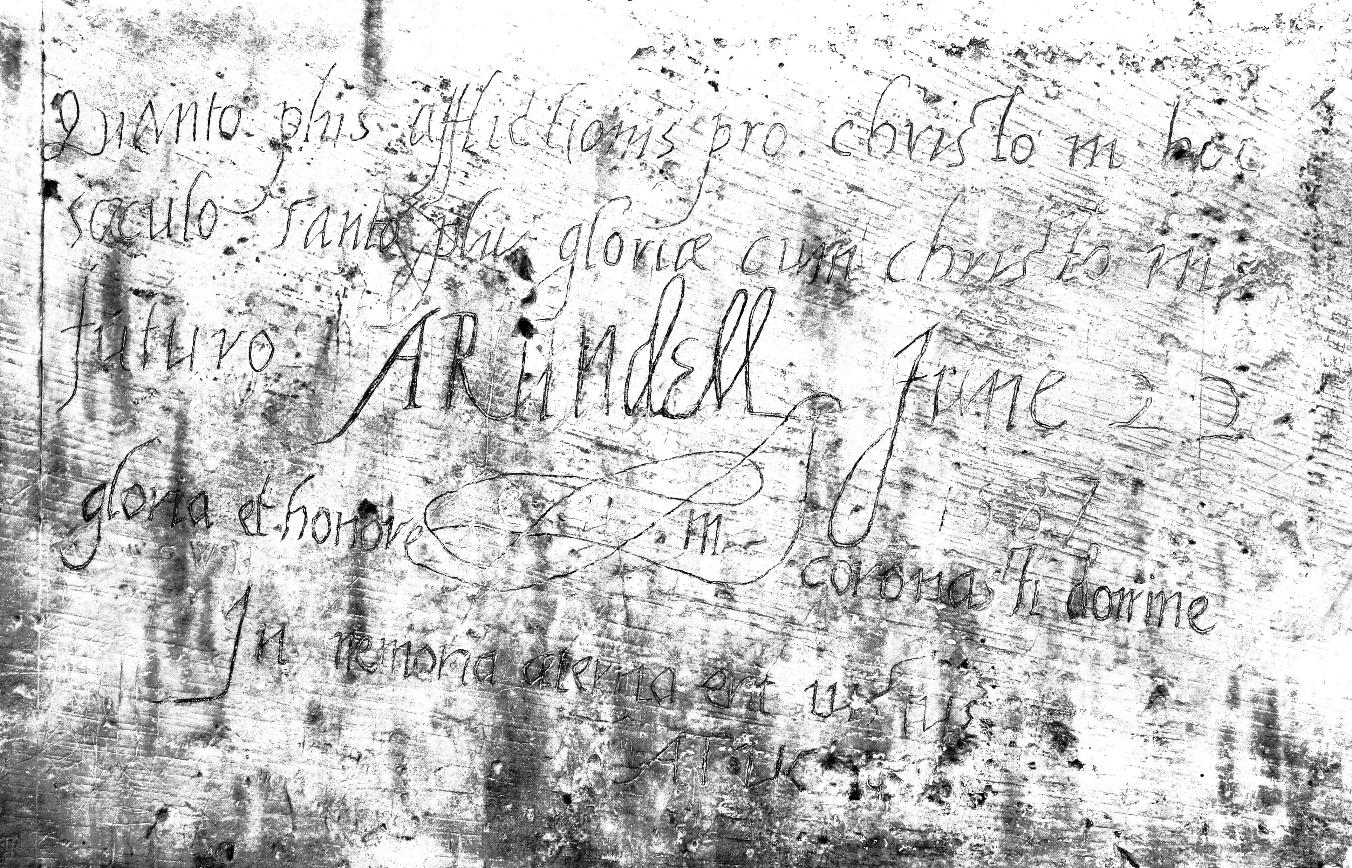 Quanto plus afflictionis pro christo in hoc
sæculo tanto plus gloriæ cum christo in
futuro ARUndell June 22
1587
gloria et honore eum
coronasti domine
In memoria æterna erit iustus